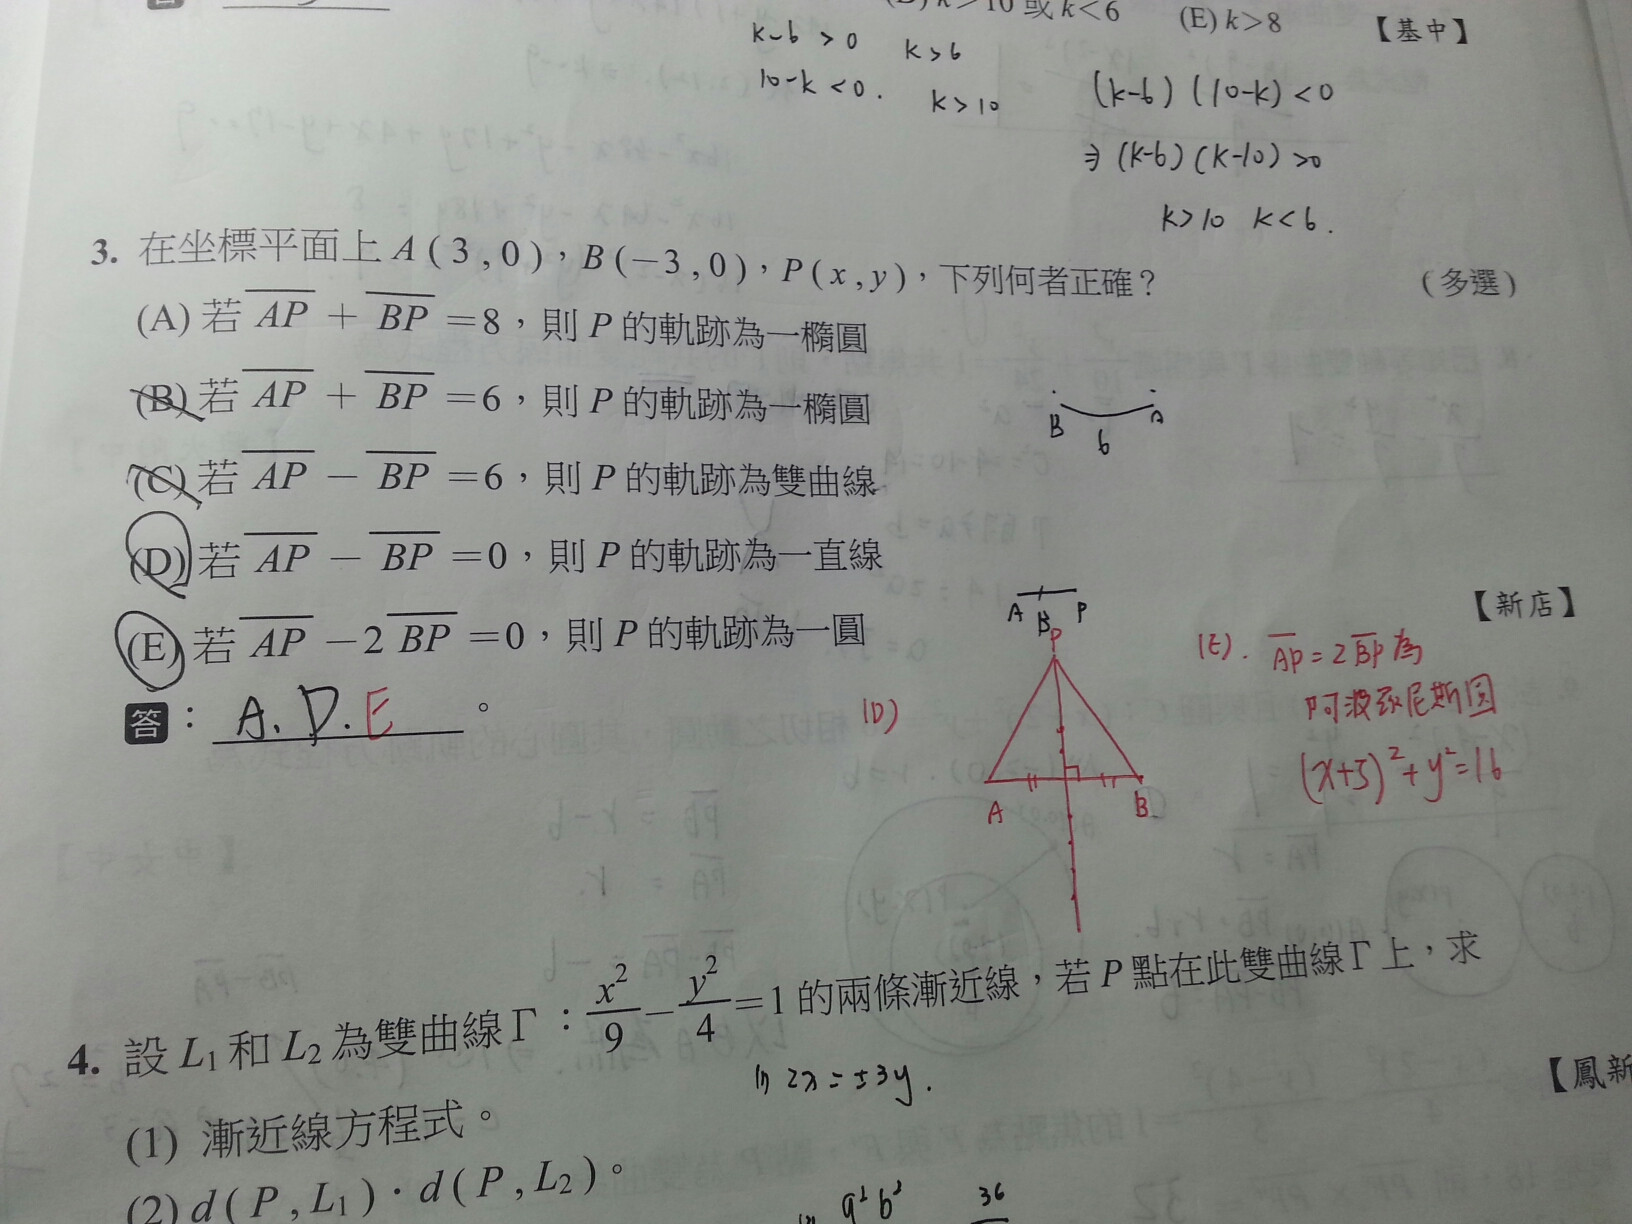 答
(D) k>10 或 k<6 (E) k>8 【基中】
k-6 > 0 k>6
10-k <0. k>10
(k-6) (10-k) <0
⇒ (k-6) (k-10) >0
k>10 k<6.
3. 在坐標平面上 A ( 3 , 0 ),B ( −3 , 0 ),P ( x , y ),下列何者正確? (多選)
(A) 若 AP + BP =8,則 P 的軌跡為一橢圓
(B) 若 AP + BP =6,則 P 的軌跡為一橢圓
B 6 A
(C) 若 AP − BP =6,則 P 的軌跡為雙曲線
(D) 若 AP − BP =0,則 P 的軌跡為一直線
【新店】
A B P
(E) 若 AP −2 BP =0,則 P 的軌跡為一圓
答: A. D. E 。
(D)
P
A B
(E). AP = 2BP 為
阿波羅尼斯圓
(x+5)²+y²=16
4. 設 L1 和 L2 為雙曲線 Γ:x²/9 − y²/4 =1 的兩條漸近線,若 P 點在此雙曲線 Γ 上,求
【鳳新
(1) 2x = ±3y.
(1) 漸近線方程式。
(2) d ( P , L1 ) · d ( P , L2 )。
a²b² 36